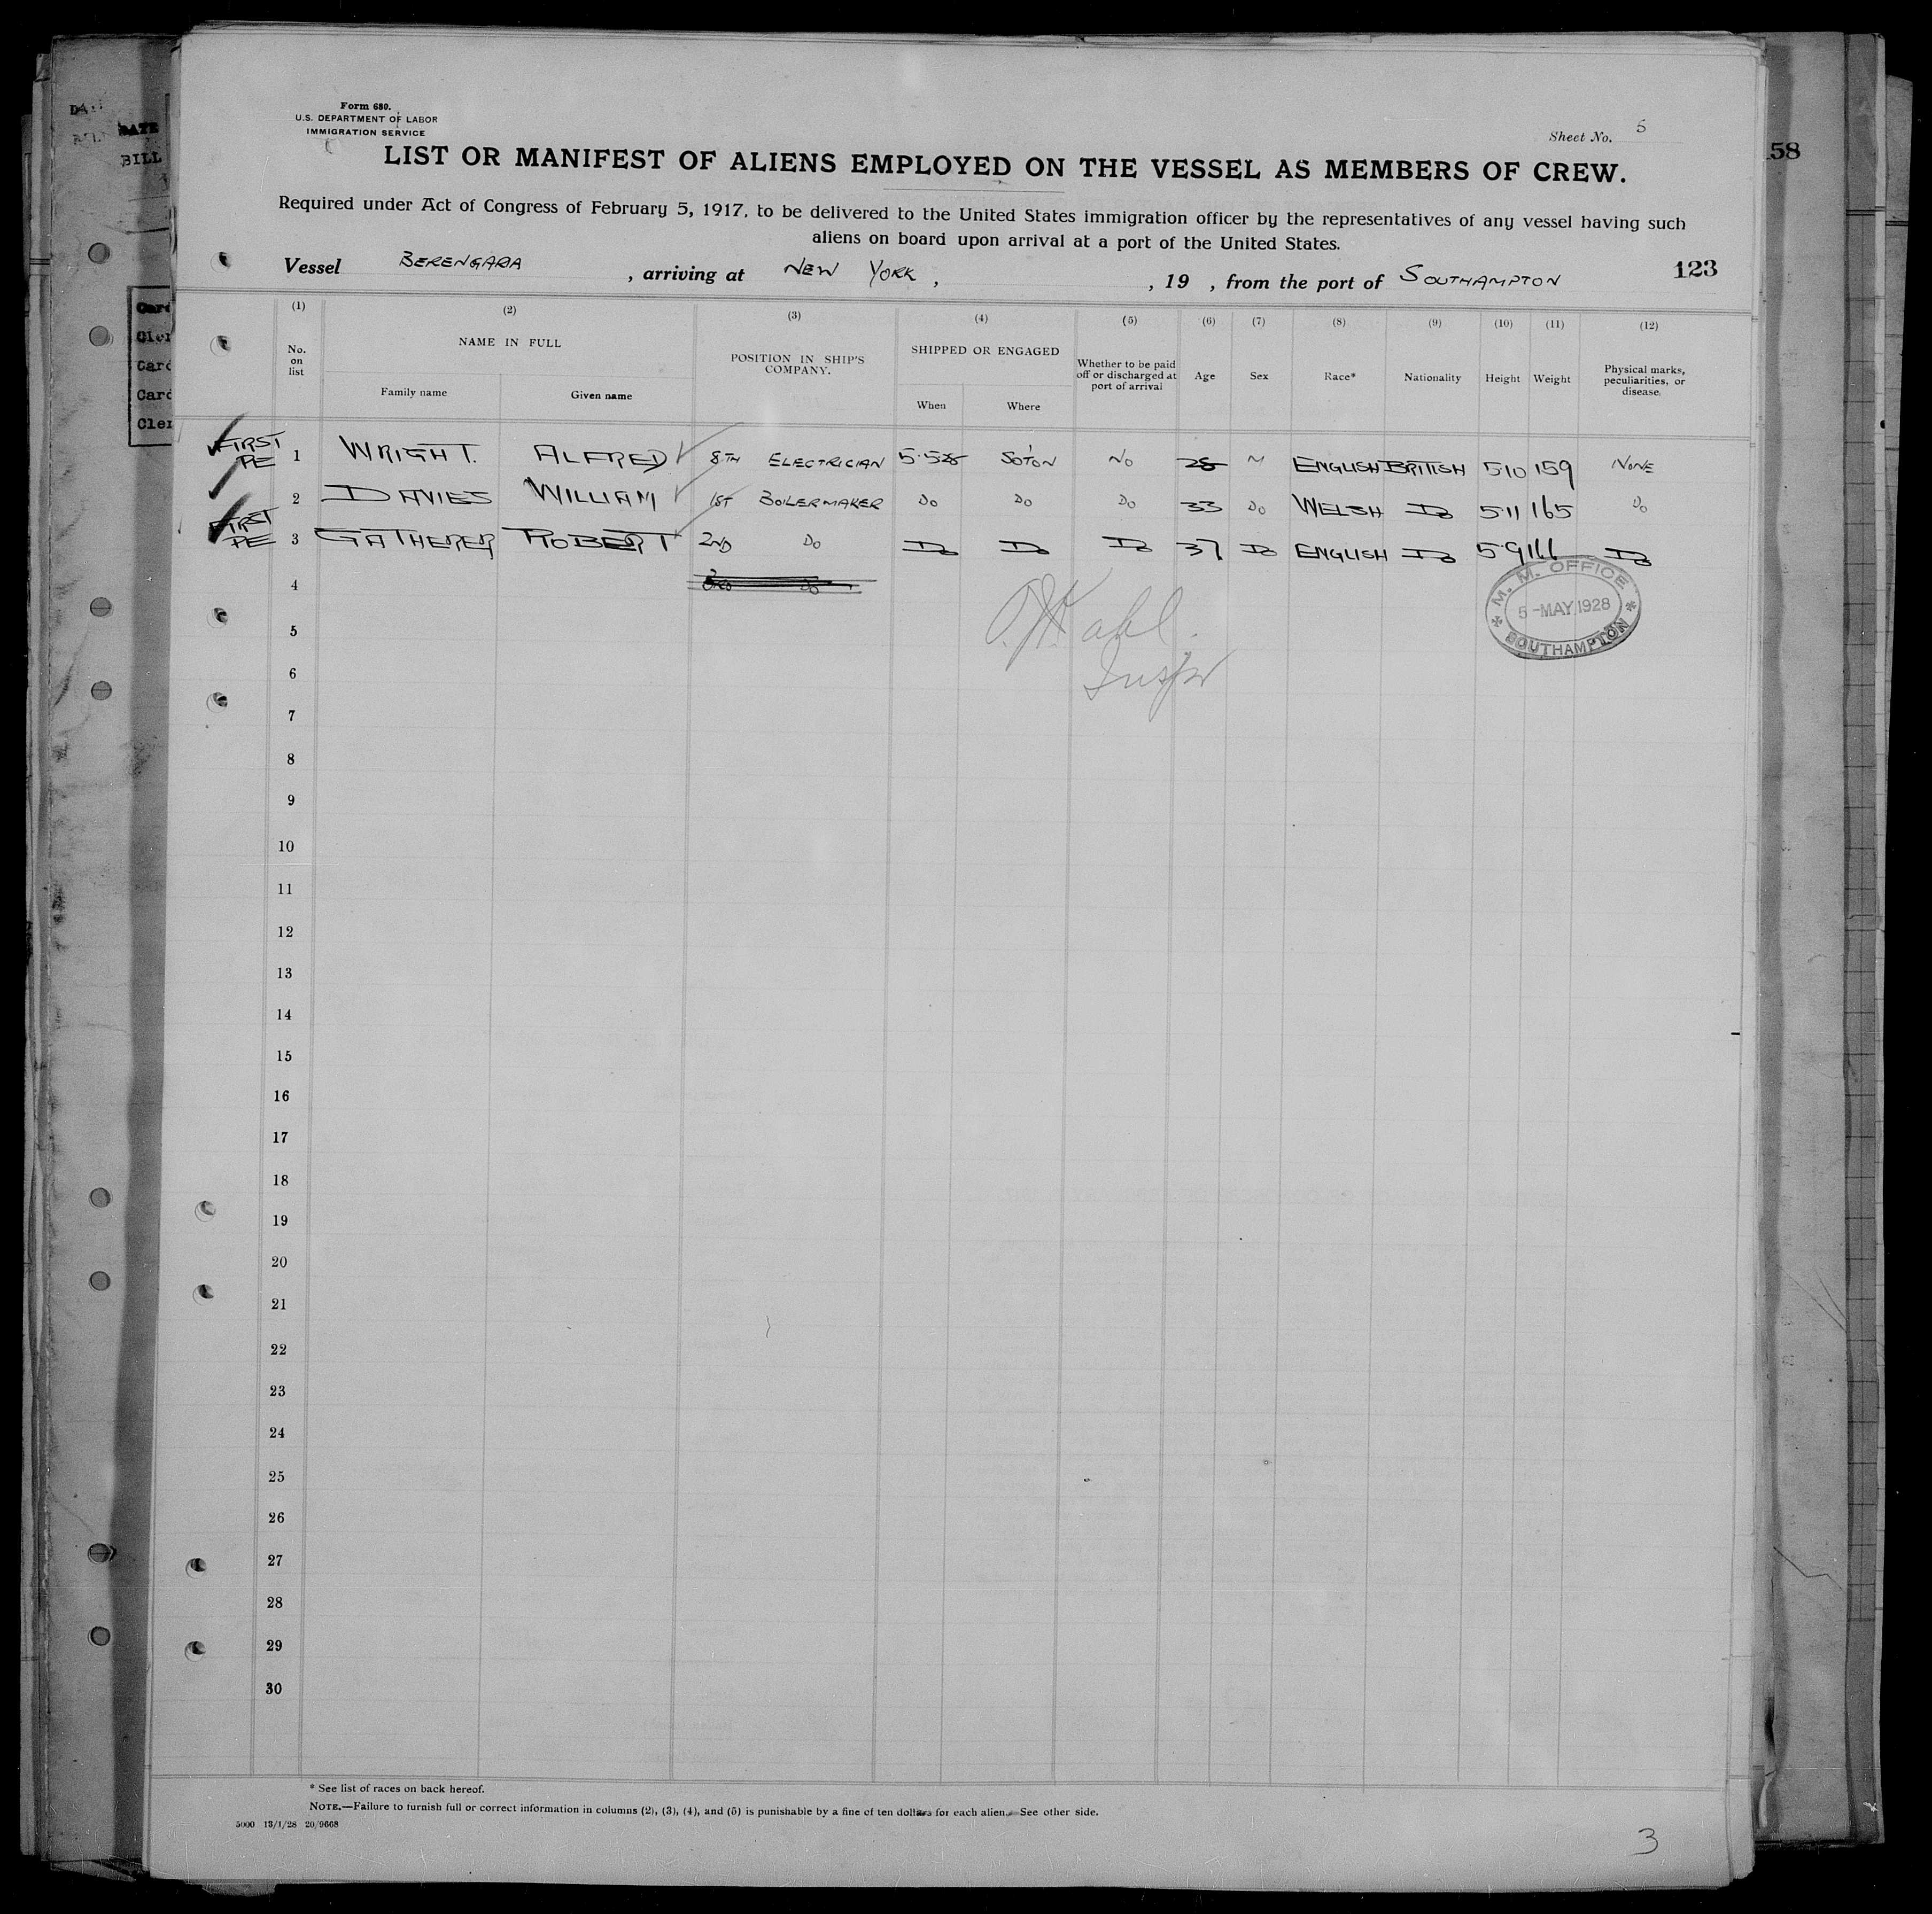 Form 680.
U.S. DEPARTMENT OF LABOR
IMMIGRATION SERVICE
Sheet No. 5
LIST OR MANIFEST OF ALIENS EMPLOYED ON THE VESSEL AS MEMBERS OF CREW.
Required under Act of Congress of February 5, 1917, to be delivered to the United States immigration officer by the representatives of any vessel having such
aliens on board upon arrival at a port of the United States.
Vessel BERENGARA, arriving at NEW YORK, , 19 , from the port of SOUTHAMPTON
123
58
DATE
BILL
Card
Cler
Card
Card
Cler
(1) (2) (3) (4) (5) (6) (7) (8) (9) (10) (11) (12)
No. on list
NAME IN FULL
Family name Given name
POSITION IN SHIP'S COMPANY.
SHIPPED OR ENGAGED
When Where
Whether to be paid off or discharged at port of arrival
Age Sex Race* Nationality Height Weight
Physical marks, peculiarities, or disease.
FIRST PE 1 WRIGHT. ALFRED 8TH ELECTRICIAN 5·5 28 SOTON NO 28 M ENGLISH BRITISH 5·10 159 NONE
2 DAVIES WILLIAM 1ST BOILERMAKER DO DO DO 33 DO WELSH DO 5·11 165 DO
FIRST PE 3 GATHERER ROBERT 2ND DO DO DO DO 37 DO ENGLISH DO 5·9 166 DO
4
5
6
7
8
9
10
11
12
13
14
15
16
17
18
19
20
21
22
23
24
25
26
27
28
29
30
M. M. OFFICE
5-MAY 1928
SOUTHAMPTON
* See list of races on back hereof.
NOTE.—Failure to furnish full or correct information in columns (2), (3), (4), and (5) is punishable by a fine of ten dollars for each alien. See other side.
5000 13/1/28 20/9668
3